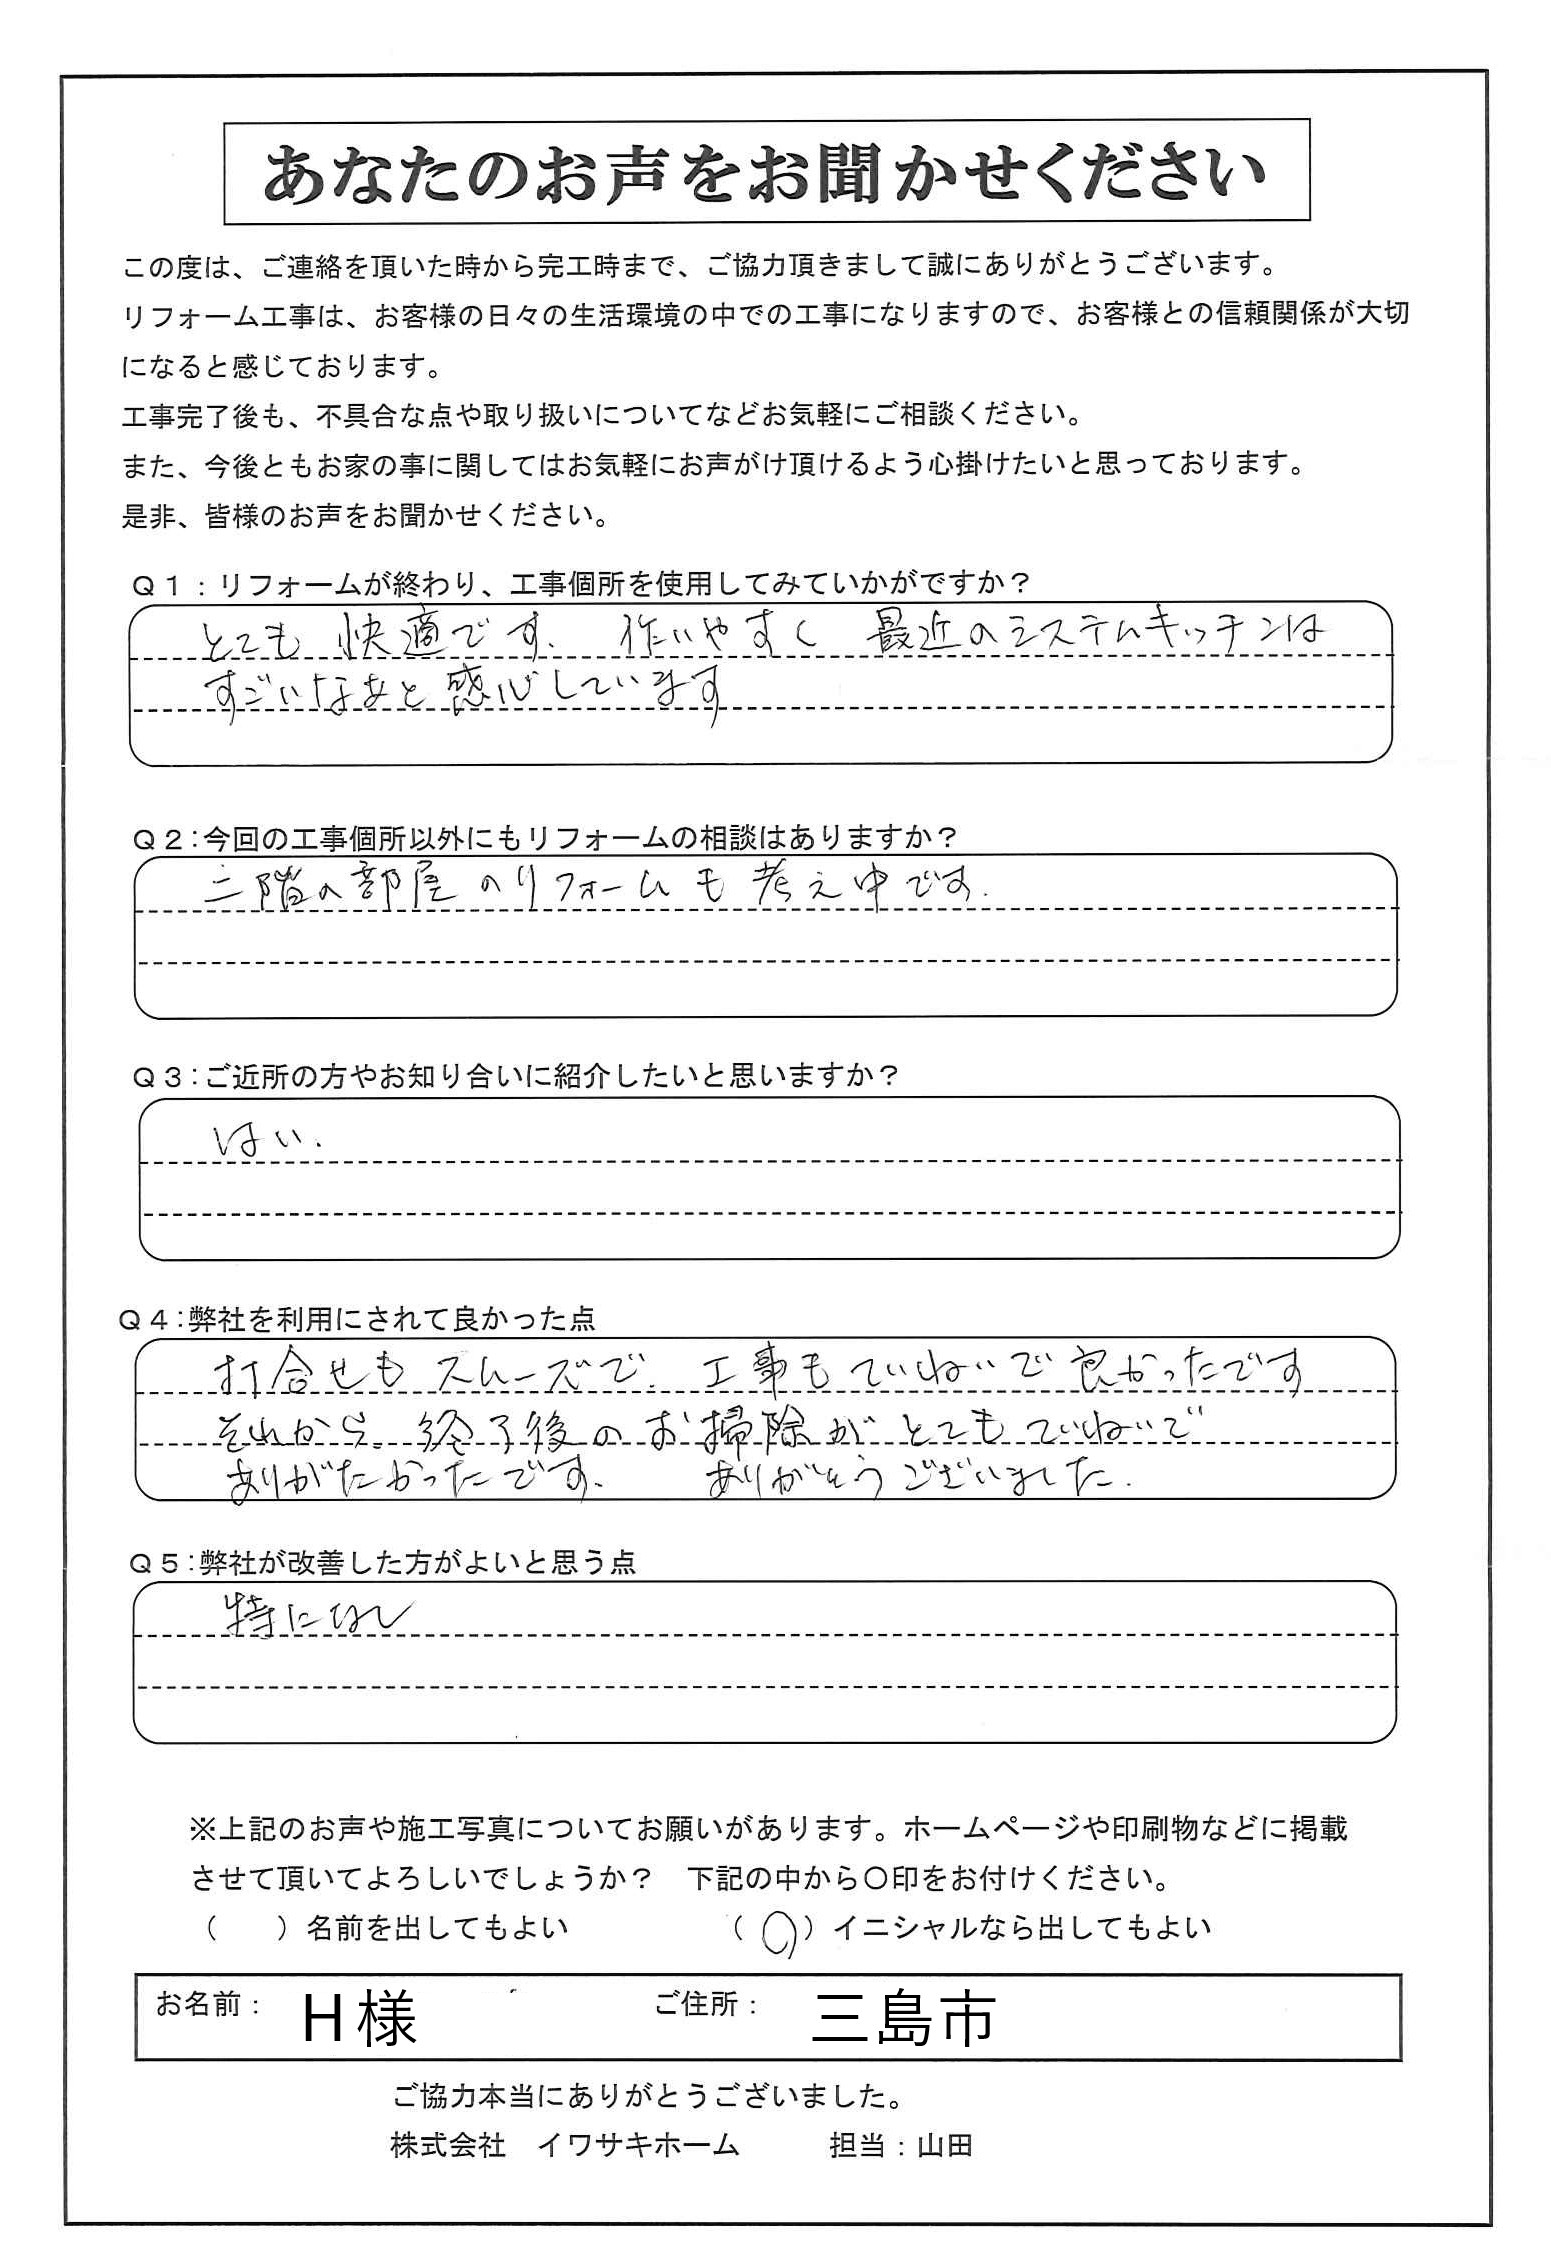 あなたのお声をお聞かせください
この度は、ご連絡を頂いた時から完工時まで、ご協力頂きまして誠にありがとうございます。
リフォーム工事は、お客様の日々の生活環境の中での工事になりますので、お客様との信頼関係が大切
になると感じております。
工事完了後も、不具合な点や取り扱いについてなどお気軽にご相談ください。
また、今後ともお家の事に関してはお気軽にお声がけ頂けるよう心掛けたいと思っております。
是非、皆様のお声をお聞かせください。
Q1：リフォームが終わり、工事個所を使用してみていかがですか？
とても快適です. 作いやすく 最近のシステムキッチンは
すごいなあと感心しています
Q2：今回の工事個所以外にもリフォームの相談はありますか？
二階の部屋のリフォームも考え中です.
Q3：ご近所の方やお知り合いに紹介したいと思いますか？
はい.
Q4：弊社を利用にされて良かった点
打合せもスムーズで. 工事もていねいで良かったです
それから. 終了後のお掃除がとてもていねいで
ありがたかったです. ありがとうございました.
Q5：弊社が改善した方がよいと思う点
特になし
※上記のお声や施工写真についてお願いがあります。ホームページや印刷物などに掲載
させて頂いてよろしいでしょうか？　下記の中から〇印をお付けください。
（　　）名前を出してもよい　（〇）イニシャルなら出してもよい
お名前：　H様　ご住所：　三島市
ご協力本当にありがとうございました。
株式会社　イワサキホーム　担当：山田